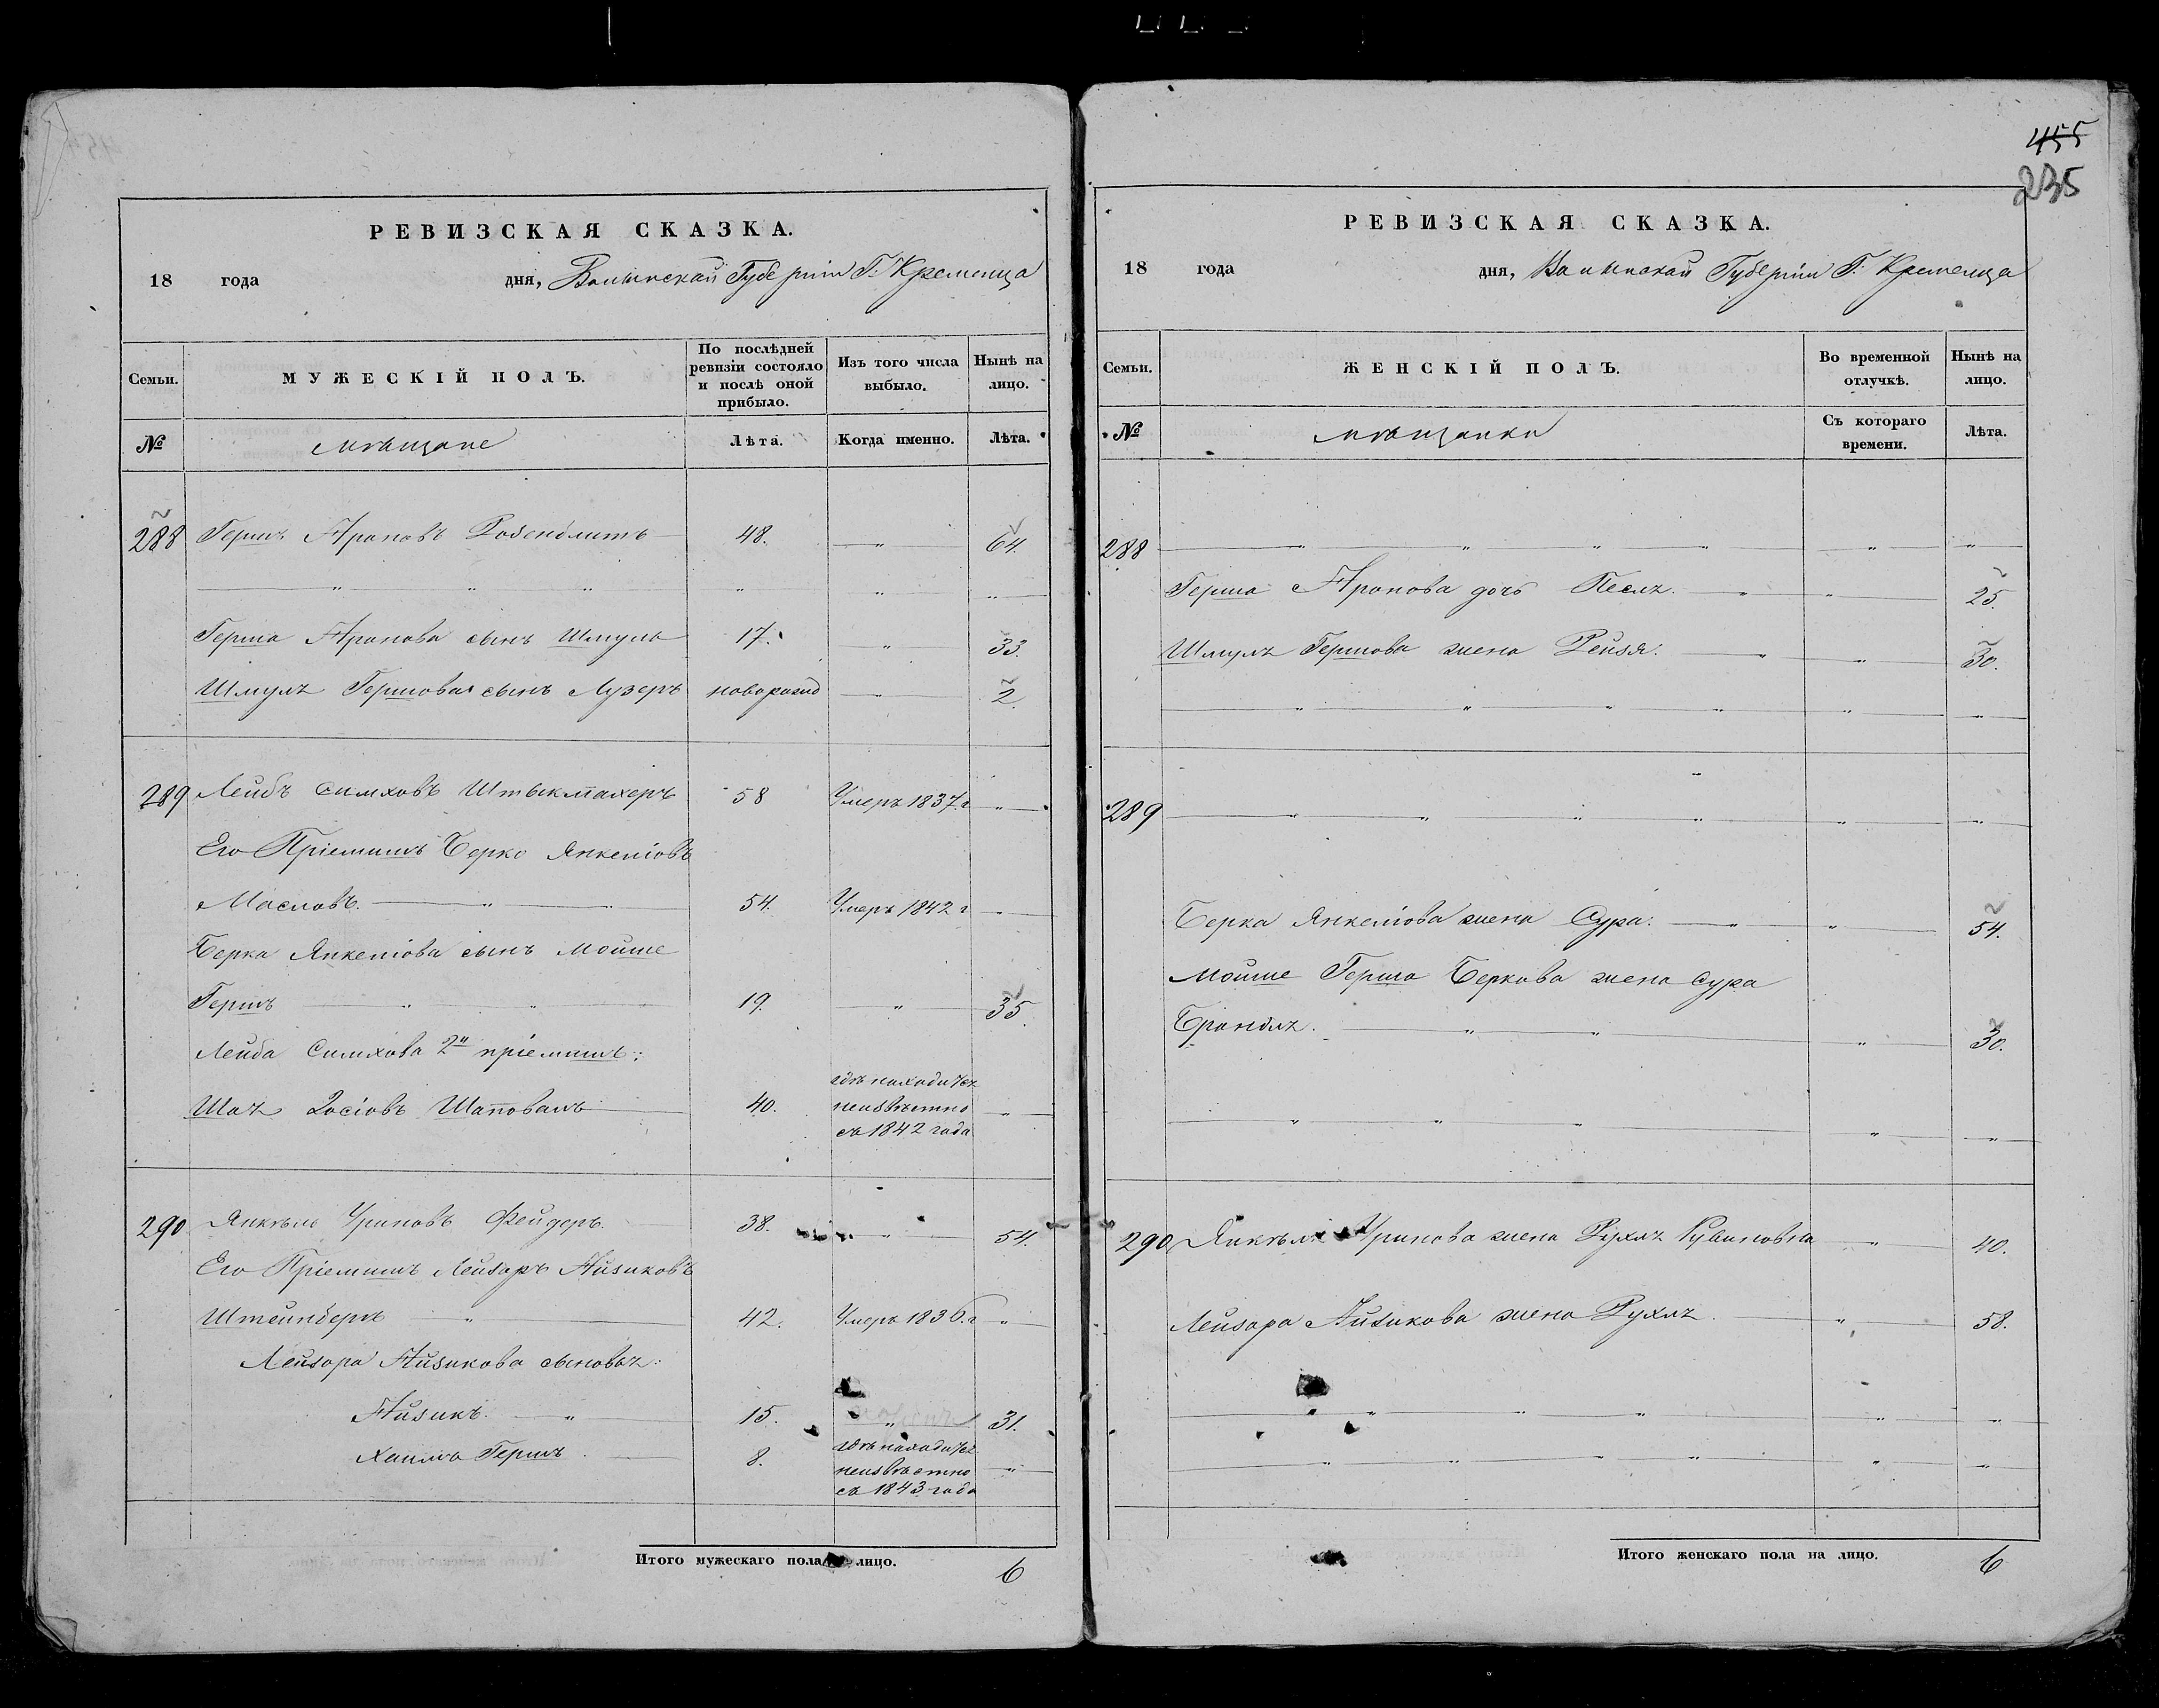 455
235
РЕВИЗСКАЯ СКАЗКА.
18 года дня, Волынской Губерніи Г. Кременца
Семьи.
МУЖЕСКІЙ ПОЛЪ.
По послѣдней ревизіи состояло и послѣ оной прибыло.
Изъ того числа выбыло.
Нынѣ на лицо.
№
мѣщане
Лѣта.
Когда именно.
Лѣта.
288 Гершъ Ароновъ Розенблитъ 48. — „ — 64.
— „ „ „ „ „ „
Герша Аронова сынъ Шмуль 17. — „ — 33.
Шмуля Гершова сынъ Лузеръ новорожд — 2.
289 Лейбъ Симховъ Штыкмахеръ 58 Умеръ 1837 г „
Его Пріемишъ Берко Янкеліовъ
Масловъ. — „ — „ 54. Умеръ 1842 г „
Берка Янкеліова сынъ Мойше
Гершъ „ „ 19. — „ — 35.
Лейба Симхова 2й пріемишъ:
гдѣ находится
Шая Іосіовъ Шаповалъ 40. неизвѣстно „
съ 1842 года
290 Янкель Уриновъ Фейдеръ. 38. — „ — 54.
Его Пріемишъ Лейзоръ Айзиковъ
Штейнберъ — „ — 42. Умеръ 1836. г „
Лейзора Айзикова сыновья:
Айзикъ. — „ 15. „ 31.
гдѣ находится
Хаимъ Гершъ. 8. неизвѣстно „
съ 1843 года
Итого мужескаго пола на лицо. 6
РЕВИЗСКАЯ СКАЗКА.
18 года дня, Волынской Губерніи Г. Кременца
Семьи.
ЖЕНСКІЙ ПОЛЪ.
Во временной отлучкѣ.
Нынѣ на лицо.
№
мѣщанки
Съ котораго времени.
Лѣта.
288 — „ „ „ „ „ „
Герша Аронова дочь Песя. — „ „ 25.
Шмуля Гершова жена Рейзя. — „ „ 30.
— „ „ „ „ „ „
289 — „ „ „ „ „ „
Берка Янкеліова жена Сура. — „ „ 54.
Мойше Герша Беркова жена Сура
Брандля. — „ „ „ 30.
— „ „ „ „ „
290 Янкеля Уринова жена Рухля Рувиновна „ 40.
Лейзора Айзикова жена Рухля. „ 58.
— „ „ „ „ „ „
— „ „ „ „ „ „
Итого женскаго пола на лицо. 6